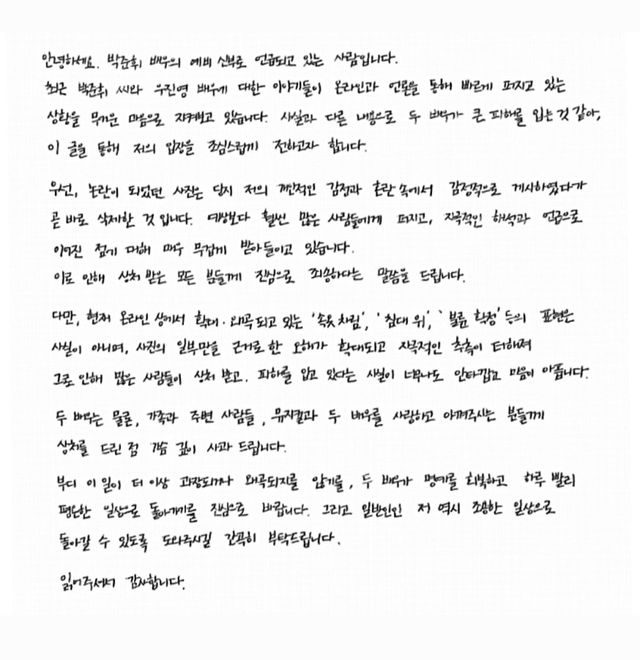 안녕하세요. 박준휘 배우의 예비 신부로 언급되고 있는 사람입니다.
최근 박준휘 씨와 우진영 배우에 대한 이야기들이 온라인과 언론을 통해 빠르게 퍼지고 있는
상황을 무거운 마음으로 지켜보고 있습니다. 사실과 다른 내용으로 두 배우가 큰 피해를 입는 것 같아,
이 글을 통해 저의 입장을 조심스럽게 전하고자 합니다.
우선, 논란이 되었던 사진은 당시 저의 개인적인 감정과 혼란 속에서 감정적으로 게시하였다가
곧 바로 삭제한 것 입니다. 예상보다 훨씬 많은 사람들에게 퍼지고, 자극적인 해석과 언급으로
이어진 점에 대해 매우 무겁게 받아들이고 있습니다.
이로 인해 상처 받은 모든 분들께 진심으로 죄송하다는 말씀을 드립니다.
다만, 현재 온라인 상에서 확대·왜곡 되고 있는 '속옷 차림', '침대 위', '불륜 확정' 등의 표현은
사실이 아니며, 사진의 일부만을 근거로 한 오해가 확대되고 자극적인 추측이 더해져
그로 인해 많은 사람들이 상처 받고, 피해를 입고 있다는 사실이 너무나도 안타깝고 마음이 아픕니다.
두 배우는 물론, 가족과 주변 사람들, 뮤지컬과 두 배우를 사랑하고 아껴주시는 분들께
상처를 드린 점 가슴 깊이 사과 드립니다.
부디 이 일이 더 이상 과장되거나 왜곡되지를 않기를, 두 배우가 명예를 회복하고 하루 빨리
평온한 일상으로 돌아가기를 진심으로 바랍니다. 그리고 일반인인 저 역시 조용한 일상으로
돌아갈 수 있도록 도와주시길 간곡히 부탁드립니다.
읽어주셔서 감사합니다.